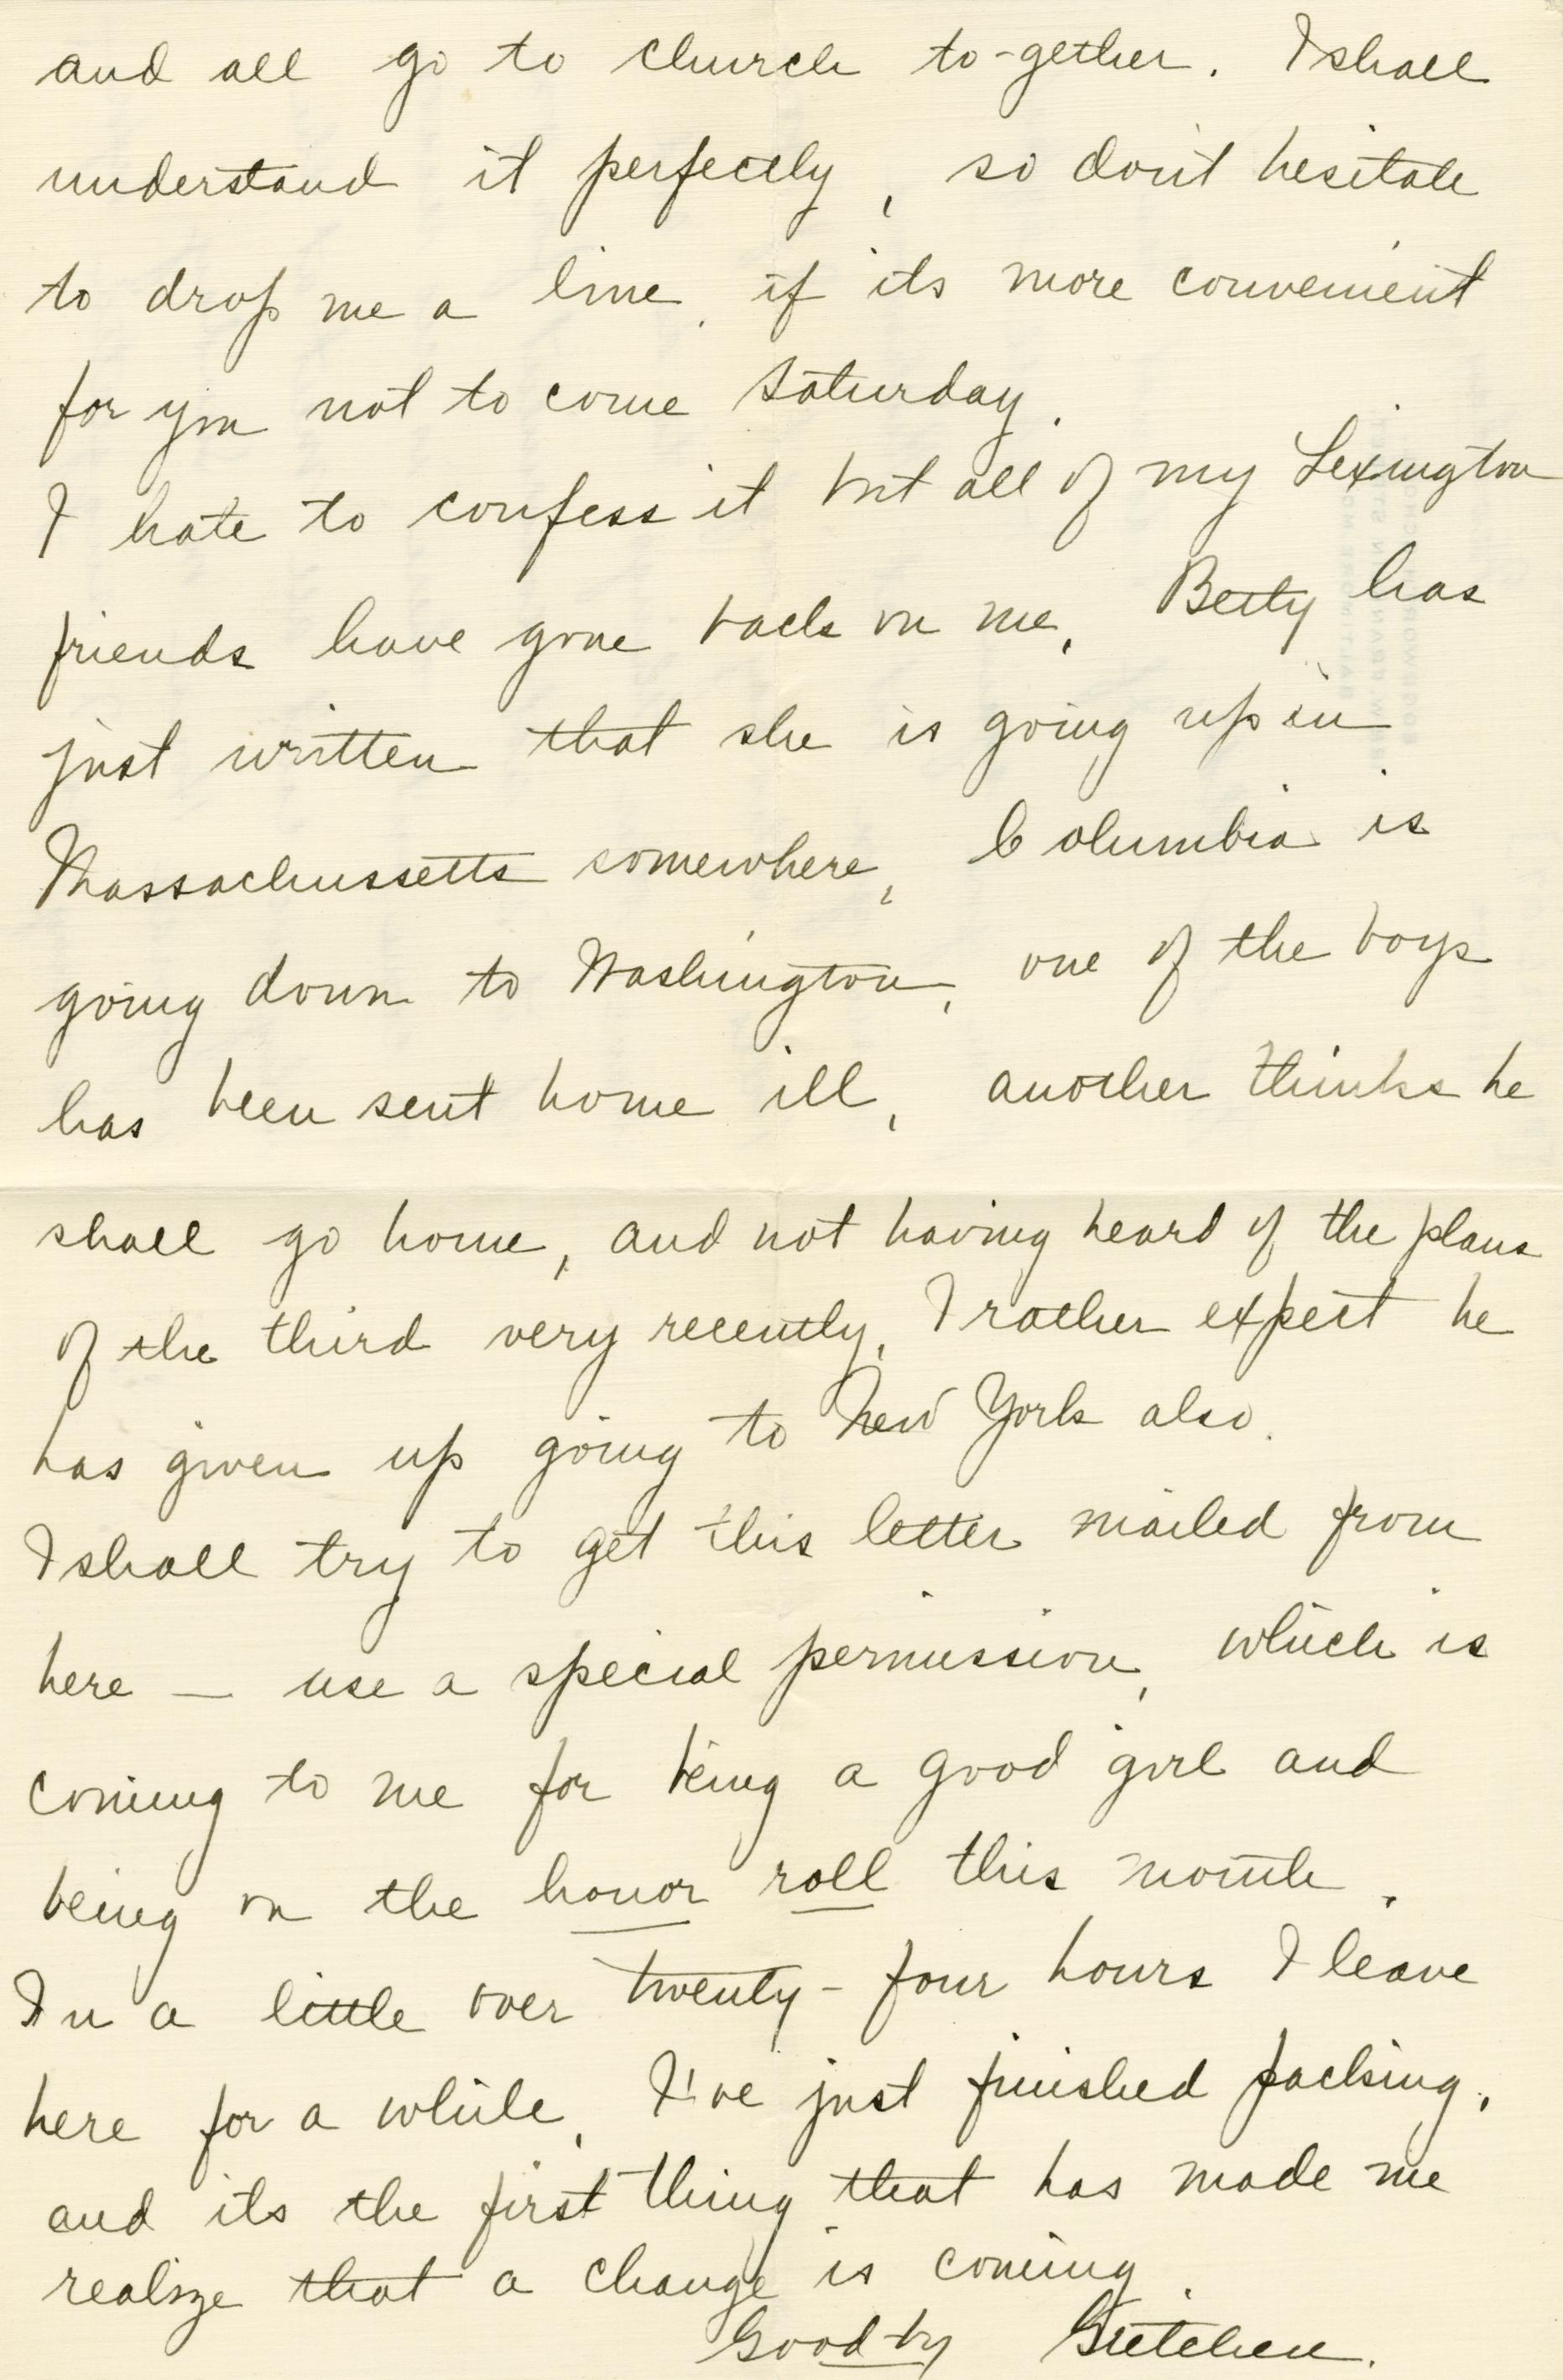 and all go to church to-gether. I shall
understand it perfectly, so don't hesitate
to drop me a line, if its more convenient
for you not to come Saturday.
I hate to confess it but all of my Lexington
friends have gone back on me, Betty has
just written that she is going up in
Massachussetts somewhere, Columbia is
going down to Washington, one of the boys
has been sent home ill, another thinks he
shall go home, and not having heard of the plans
of the third very recently, I rather expect he
has given up going to New York also.
I shall try to get this letter mailed from
here — use a special permission, which is
coming to me for being a good girl and
being on the honor roll this month.
In a little over twenty-four hours I leave
here for a while, I've just finished packing,
and its the first thing that has made me
realize that a change is coming.
Good-by Gretchen.